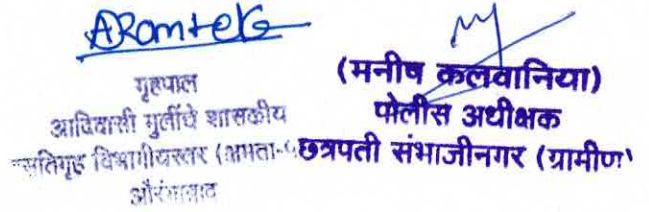 ARomteke
गृहपाल
आदिवासी मुलींचे शासकीय
वसतिगृह विभागीयस्तर (क्षमता-
औरंगाबाद
(मनीष कलवानिया)
पोलीस अधीक्षक
छत्रपती संभाजीनगर (ग्रामीण)